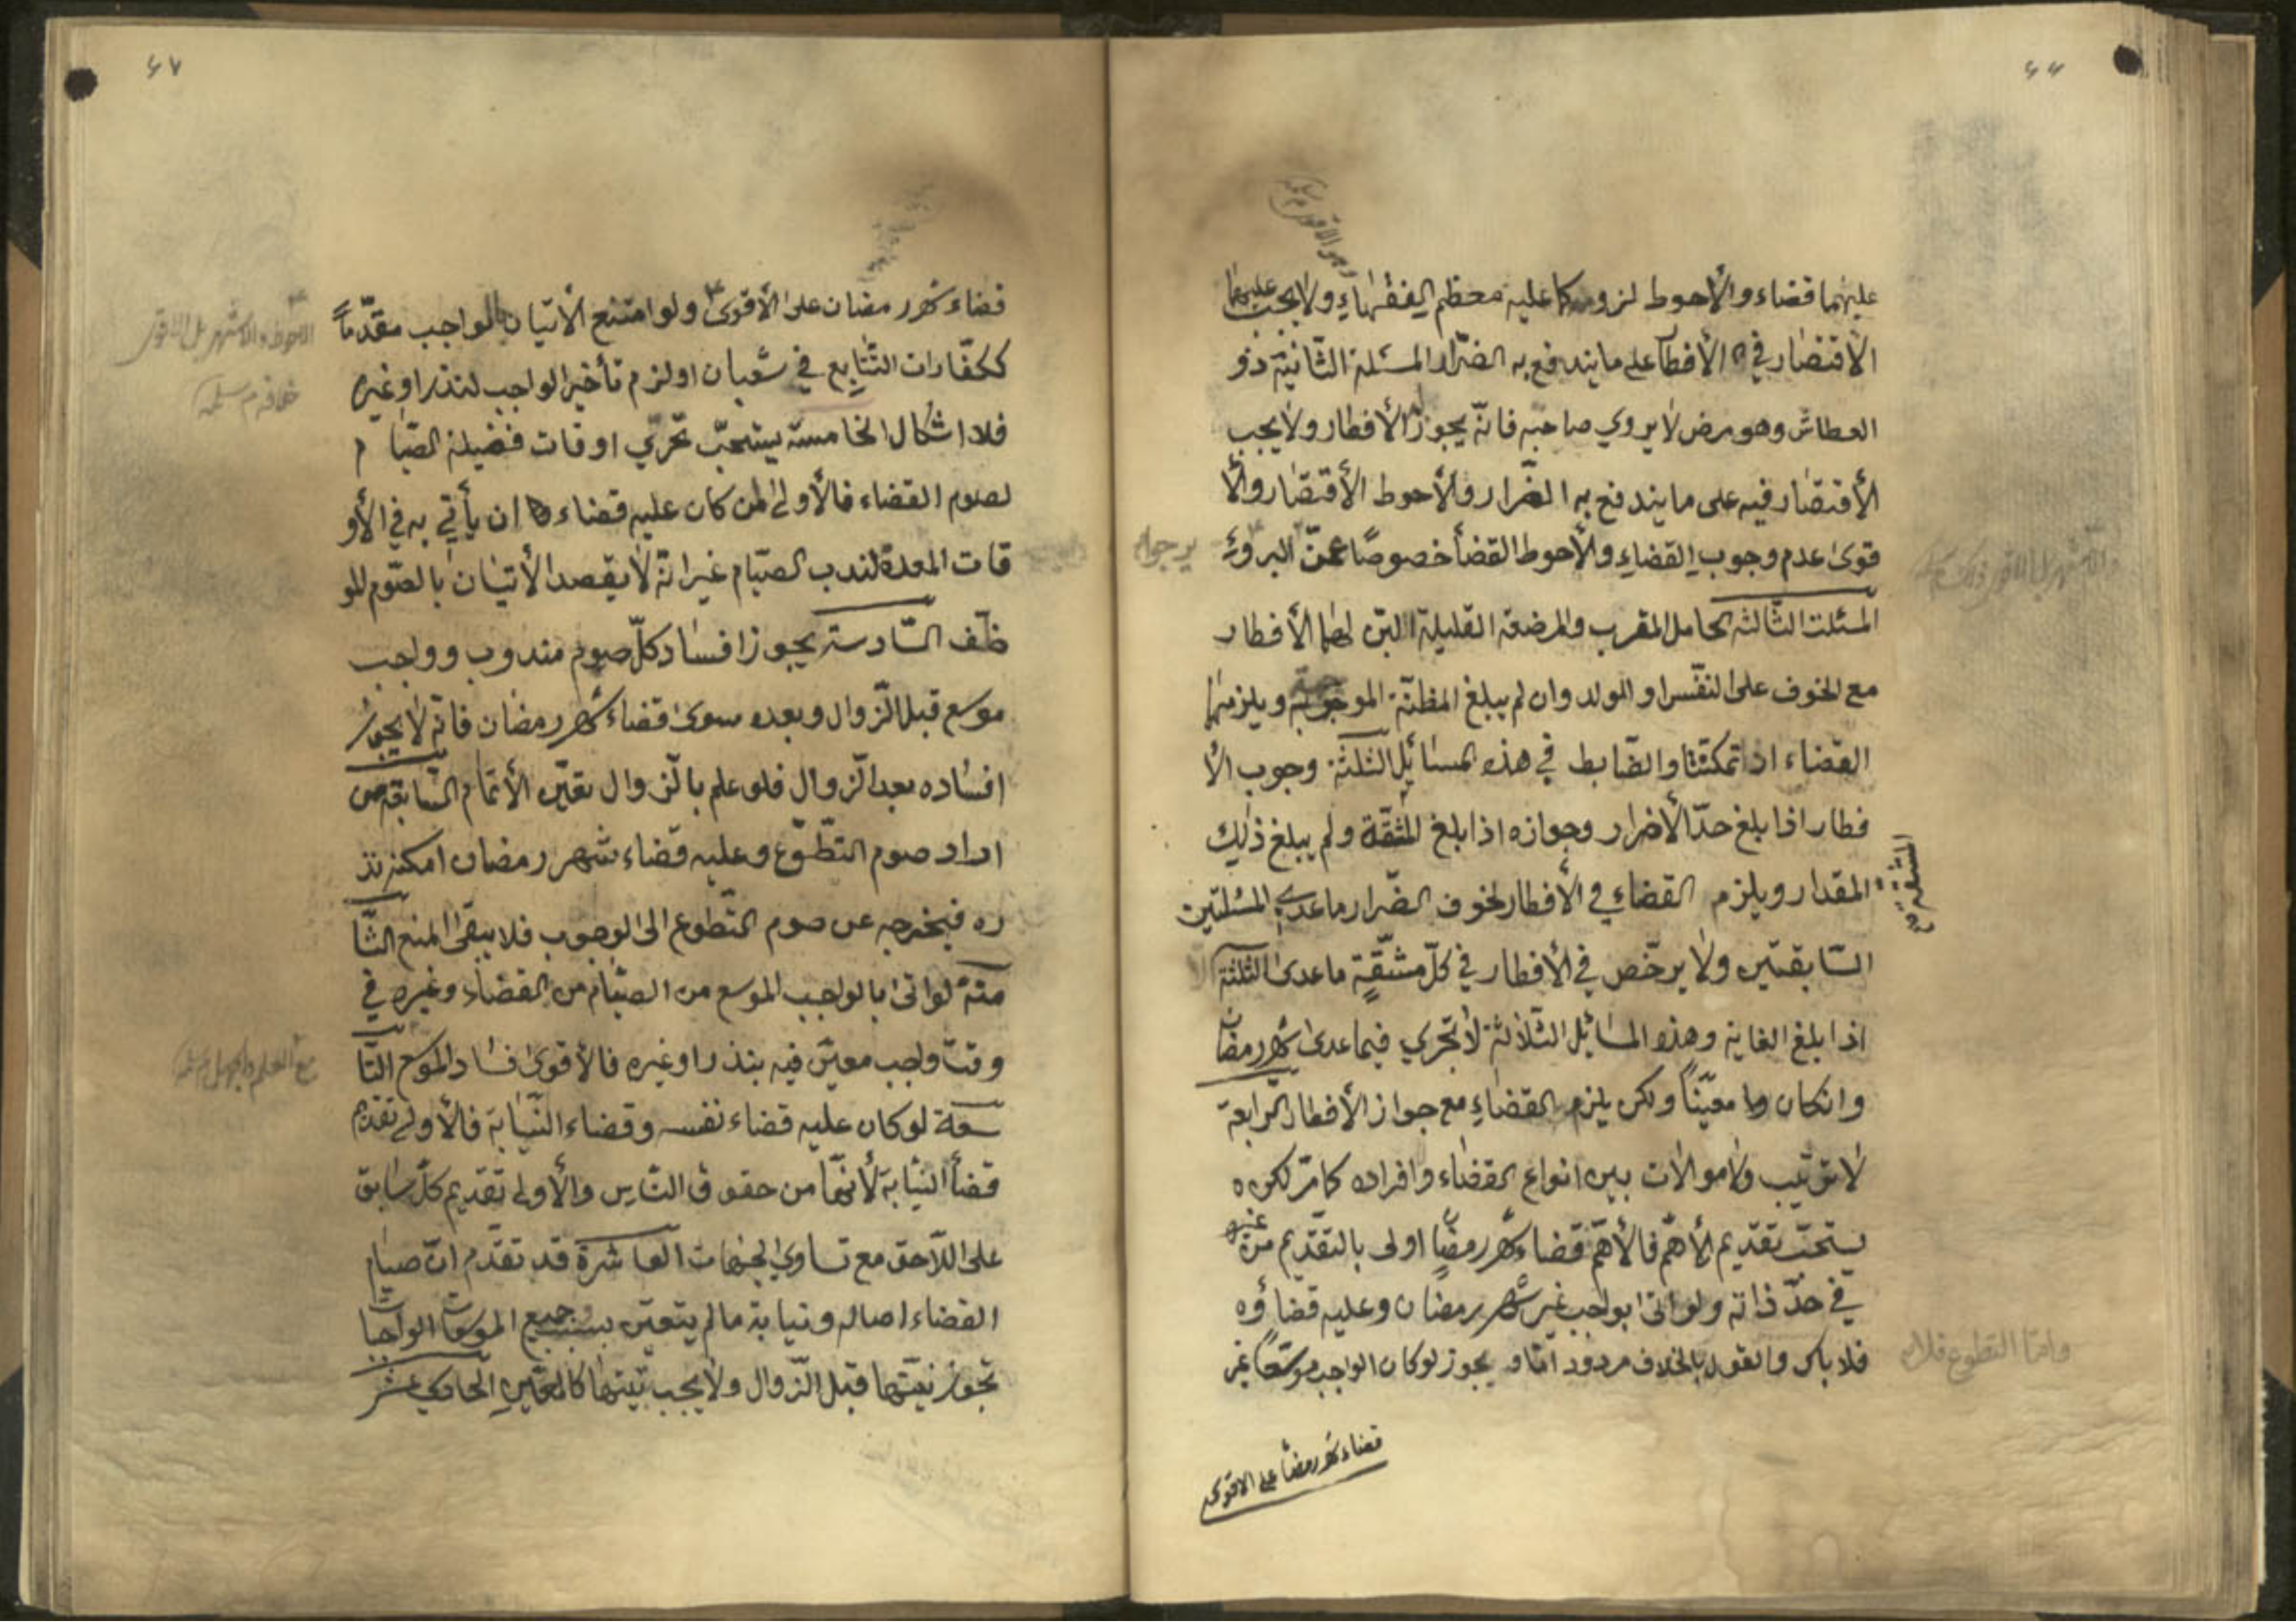 عليهما قضاء والأحوط لزومه كما عليه معظم الفقهاء ولا يجب عليهما
الأقتصار في الأفطار على ما يندفع به الضرار المسئلة الثانية ذو
العطاش وهو مرض لا يروي صاحبه فانه يجوز له الأفطار ولا يجب
الأقتصار فيه على ما يندفع به الضرار والأحوط الأقتصار والأ
قوى عدم وجوب القضاء والأحوط القضأ خصوصًا عمن البروئه
يرجوا
المسئلت الثالثة الحامل المقرب والمرضعة القليلة اللبن لهما الأفطار
مع الخوف على النفس او الولد وان لم يبلغ المظنّة الموجبة ويلزمهما
القضاء اذا تمكنتا والضابط في هذه المسائل الثلثة وجوب الأ
فطار اذا بلغ حدّ الأضرار وجوازه اذا بلغ المشقة ولم يبلغ ذلك
المقدار ويلزم القضاء في الأفطار لخوف الضرار ما عدى المسئلتين
السّابقتين ولا يرخّص في الأفطار في كلّ مشقّةٍ ما عدى الثلثة
اذا بلغ الغاية وهذه المسائل الثلاثة لا تجري فيما عدى شهر رمضان
وانكان معيّناً ولكن يلزم القضاء مع جواز الأفطار الرابعة
لا ترتيب ولا موالات بين انواع القضاء وافراده كما مرّ لكن
يستحبّ تقديم الأهمّ فالأهمّ قضاء شهر رمضان اولى بالتقديم من غيره
في حدّ ذاته ولو اتى بواجب غير شهر رمضان وعليه قضاؤه
فلا باس والقول بالخلاف مردود امّا و يجوز لو كان الواجب موسّعاً غير
وامّا التطوع فلا
قضاء شهر رمضأ على الاقوى
قضاء شهر رمضان على الأقوى ولو امتنع الأتيان بالواجب مقدّماً
ككفّارات التّتابع في شعبان او لزم تأخير الواجب لنذر او غيره
فلا اشكال الخامسة يستحبّ تحرّي اوقات فضيلة الصّيام
لصوم القضاء فالأولى لمن كان عليه قضاء ان يأتي به في الأو
قات المعدة لندب الصّيام غير انّه لا يقصد الأتيان بالصّوم للمو
ظّف السّادسة يجوز افساد كلّ صوم مندوب وواجب
موسع قبل الزّوال وبعده سوى قضاء شهر رمضان فانّه لا يجوز
افساده بعد الزّوال فلو علم بالزّوال تعيّن الأتمام السّابعة من
اراد صوم التّطوّع وعليه قضاء شهر رمضان امكنه نذ
ره فيخرجه عن صوم التّطوع الى الوجوب فلا يبقى المنع الثّا
منة لو اتى بالواجب الموسع من الصيّام من القضاء وغيره في
وقت واجب معيّن فيه بنذر او غيره فالأقوى فساد الموسع التّا
مع العلم والجهل
سعة لو كان عليه قضاء نفسه وقضاء النّيابة فالأولى تقديم
قضأ النّيابة لأنّها من حقوق النّاس والأولى تقديم كلّ سابق
على اللّاحق مع تساوي الجهات العاشرة قد تقدّم انّ صيام
القضاء اصالة ونيابة ما لم يتعيّن بسبب جميع الموسعات الواجبات
تجوز نيّتها قبل الزّوال ولا يجب تبيتها كالمعيّن الحادي عشر